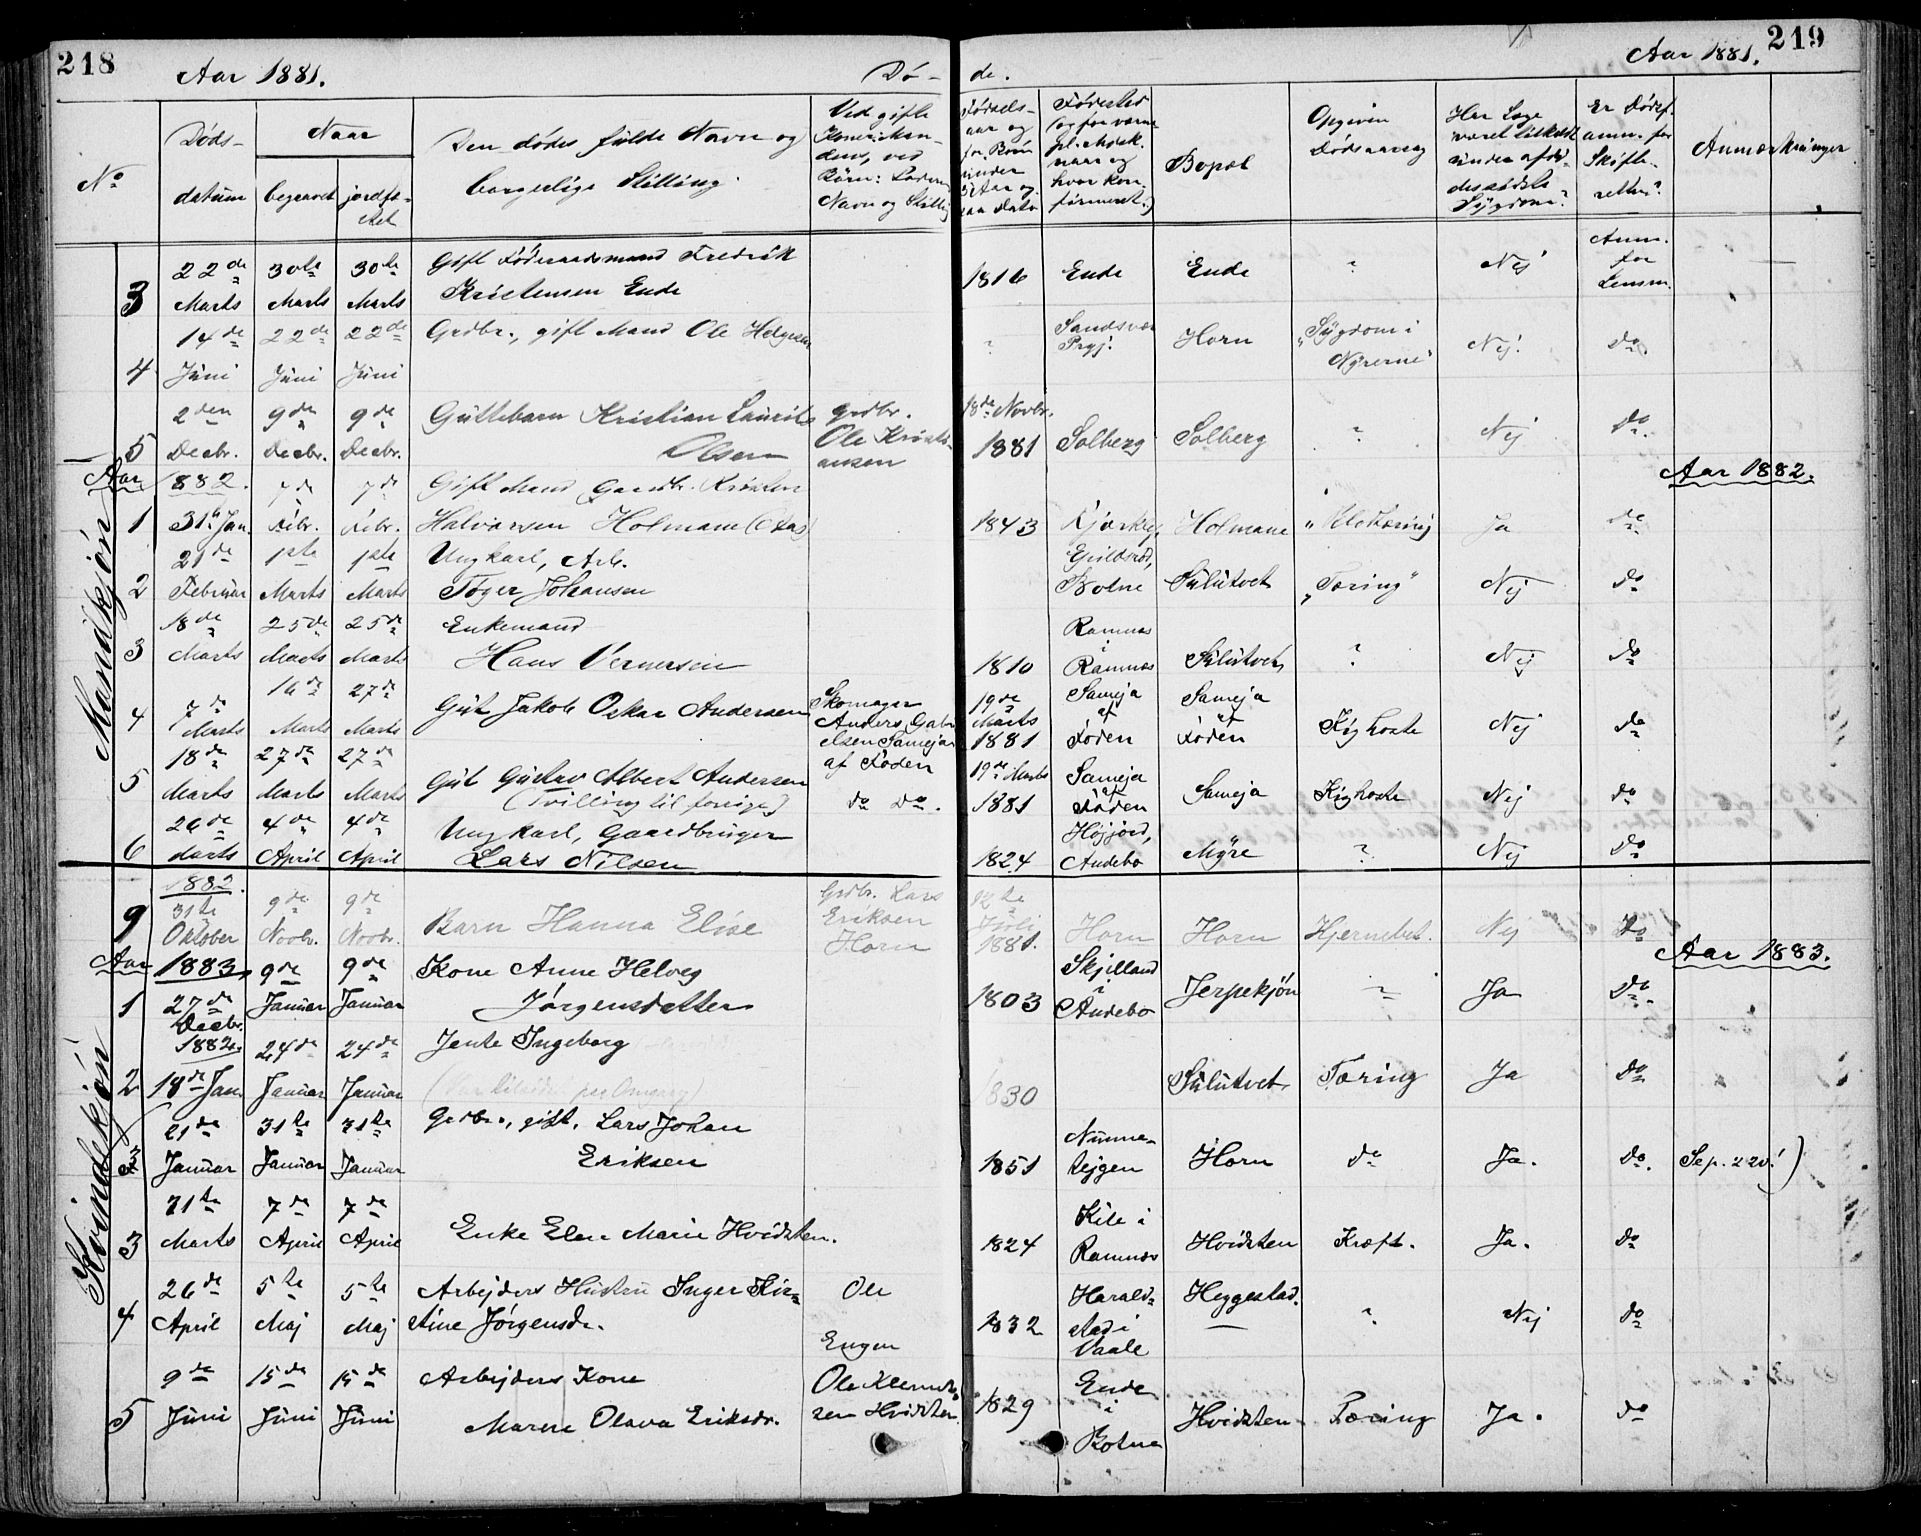 218
Aar 1881.
Dö-
de.
Aar 1881.
219
No
Döds-
datum
Naar
begravet
jordfæ-
stet
Den dødes fulde Navn og
borgerlige Stilling.
Ved gifte
Navn og Stilling
Födsels-
aar og
for Börn
under
Födested
Bopæl
Opgiven
Dødsaarsag
Har Læge
været tilkaldt
under afdö-
des sidste
Sygdom?
Er Dödsf.
anm. for
Skifte-
retten?
Anmærkninger
Mandkjön
3 22de Marts 30te Marts 30te Marts Gift Föderaadsmand Fredrik
Kristensen Ende 1816 Ende Ende ? Nej Anm.
for
Lensm.
4 14de Juni 22de Juni 22de Juni Grdbr., gift Mand Ole Helgesen ? Sandsvær
Prgj. Horn "Sygdom i
Nyrerne" Nej. Do.
5 2den Decbr. 9de Decbr. 9de Decbr. Guttebarn Kristian Laurits
Olsen Grdbr.
Ole Kristi-
ansen 18de Novbr.
1881 Solberg Solberg ? Nej Do
Aar 1882. Aar 1882.
1 31te Jan. 7de Febr. 7de Febr. Gift Mand Gaardbr. Kristen
Halvorsen Holmane 1843 Holmane Ja do
2 21de Februar 1ste Marts 1ste Marts Ungkarl, Arb.
Töger Johansen Botne Sulutvet "Tæring" Nej do
3 18de Marts 25de Marts 25de Marts Enkemand
Hans Vernersen 1810 Ramnæs
i
Ramnæs Sulutvet ? Nej do
4 7de Marts 16de Marts 27de Marts Gut Jakob Oskar Andersen Skomager
Anders Gabri-
elsen Sameja
af Föden 19de
Marts
1881 Sameja
af
Föden Sameja
af
Föden Kighoste Nej do
5 18de Marts 27de Marts 27de Marts Gut Gustav Albert Andersen
(Tvilling til forrige) do Do. 19de Marts
1881 Sameja
af
Föden Sameja Kighoste Nej do
6 26de Marts 4de April 4de April Ungkarl, Gaardbruger
Lars Nilsen 1824 Höjjord,
Andebo Myre ? Nej Do
Kvindekjön
1882.
9 31te Oktober 9de Novbr. 9de Novbr. Barn Hanna Elise Grdbr. Lars
Eriksen
Horn Juli
1881. Horn Horn Hjernebet. Nej Do
Aar 1883. Aar 1883.
1 27de Decbr. 1882. 9de Januar 9de Januar Kone Anne Helveg
Jørgensdatter 1803 Skjelland
i
Andebo Jerpekjön ? Ja Do.
2 18de Jan. 24de Januar 24de Januar Jente Ingeborg 1830 Sulutvet Tæring Ja Do
3 21de Januar 31te Januar 31te Januar Grdbr., gift, Lars Johan
Eriksen 1851 Numme-
stejgen Horn do Ja. Do. Se p. 220!)
3 31te Marts 7de April 7de April Enke Elen Marie Hvidsten. 1824 Kile i
Ramnæs Hvidsten Kræft. Ja. Do
4 26de April 5te Maj 5te Maj Arbejders Hustru Inger Kir-
stine Jørgensdr. Ole
Engen 1832 Harald-
stad i
Vaale Heggestad. ? Nej do
5 9de Juni 15de Juni 15de Juni Arbejders Kone
Maren Olava Eriksdr. Ole Klemet-
sen Hvidsten 1829 Ende
i
Botne Hvidsten Tæring Ja. do